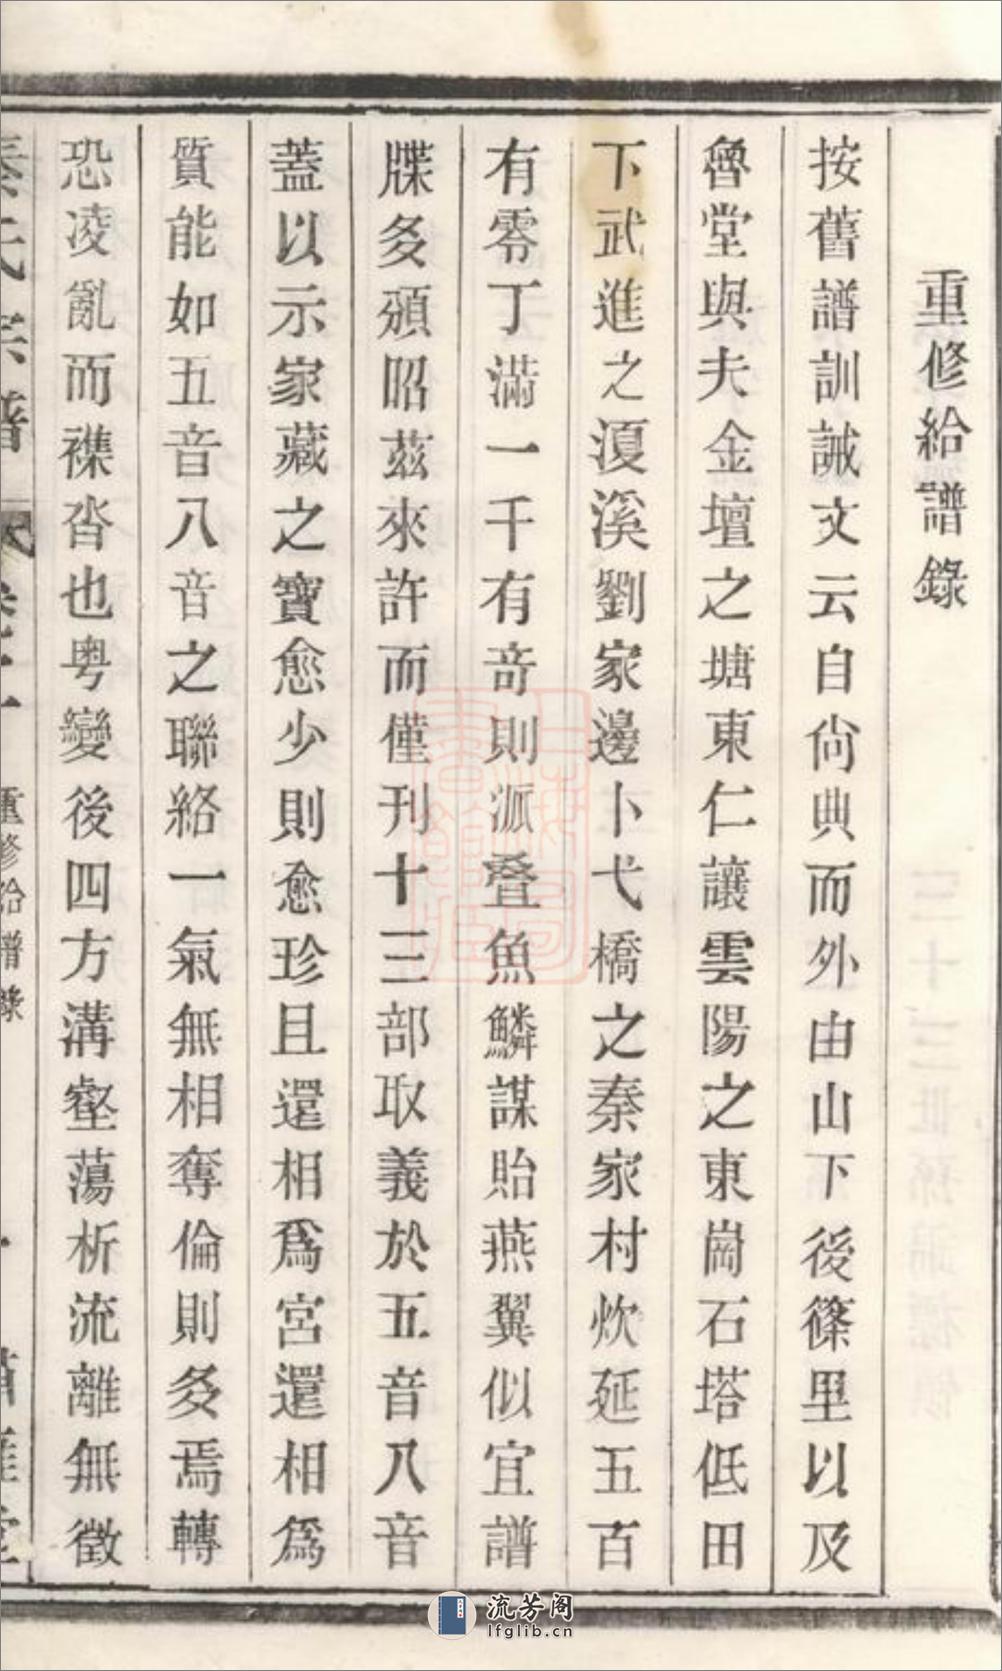 重修給譜錄
按舊譜訓誡文云自尙典而外由山下後篠里以及
魯堂與夫金壇之塘東仁讓雲陽之東崗石塔低田
下武進之湲溪劉家邊卜弋橋之秦家村炊延五百
有零丁滿一千有竒則派叠魚鱗謀貽燕翼似宜譜
牒多頒昭茲來許而僅刊十三部取義於五音八音
蓋以示家藏之寶愈少則愈珍且還相爲宮還相爲
質能如五音八音之聯絡一氣無相奪倫則多焉轉
恐凌亂而襍沓也粤變後四方溝壑蕩析流離無徵
秦氏宗譜
重修給譜錄
流芳阁
lfglib.cn